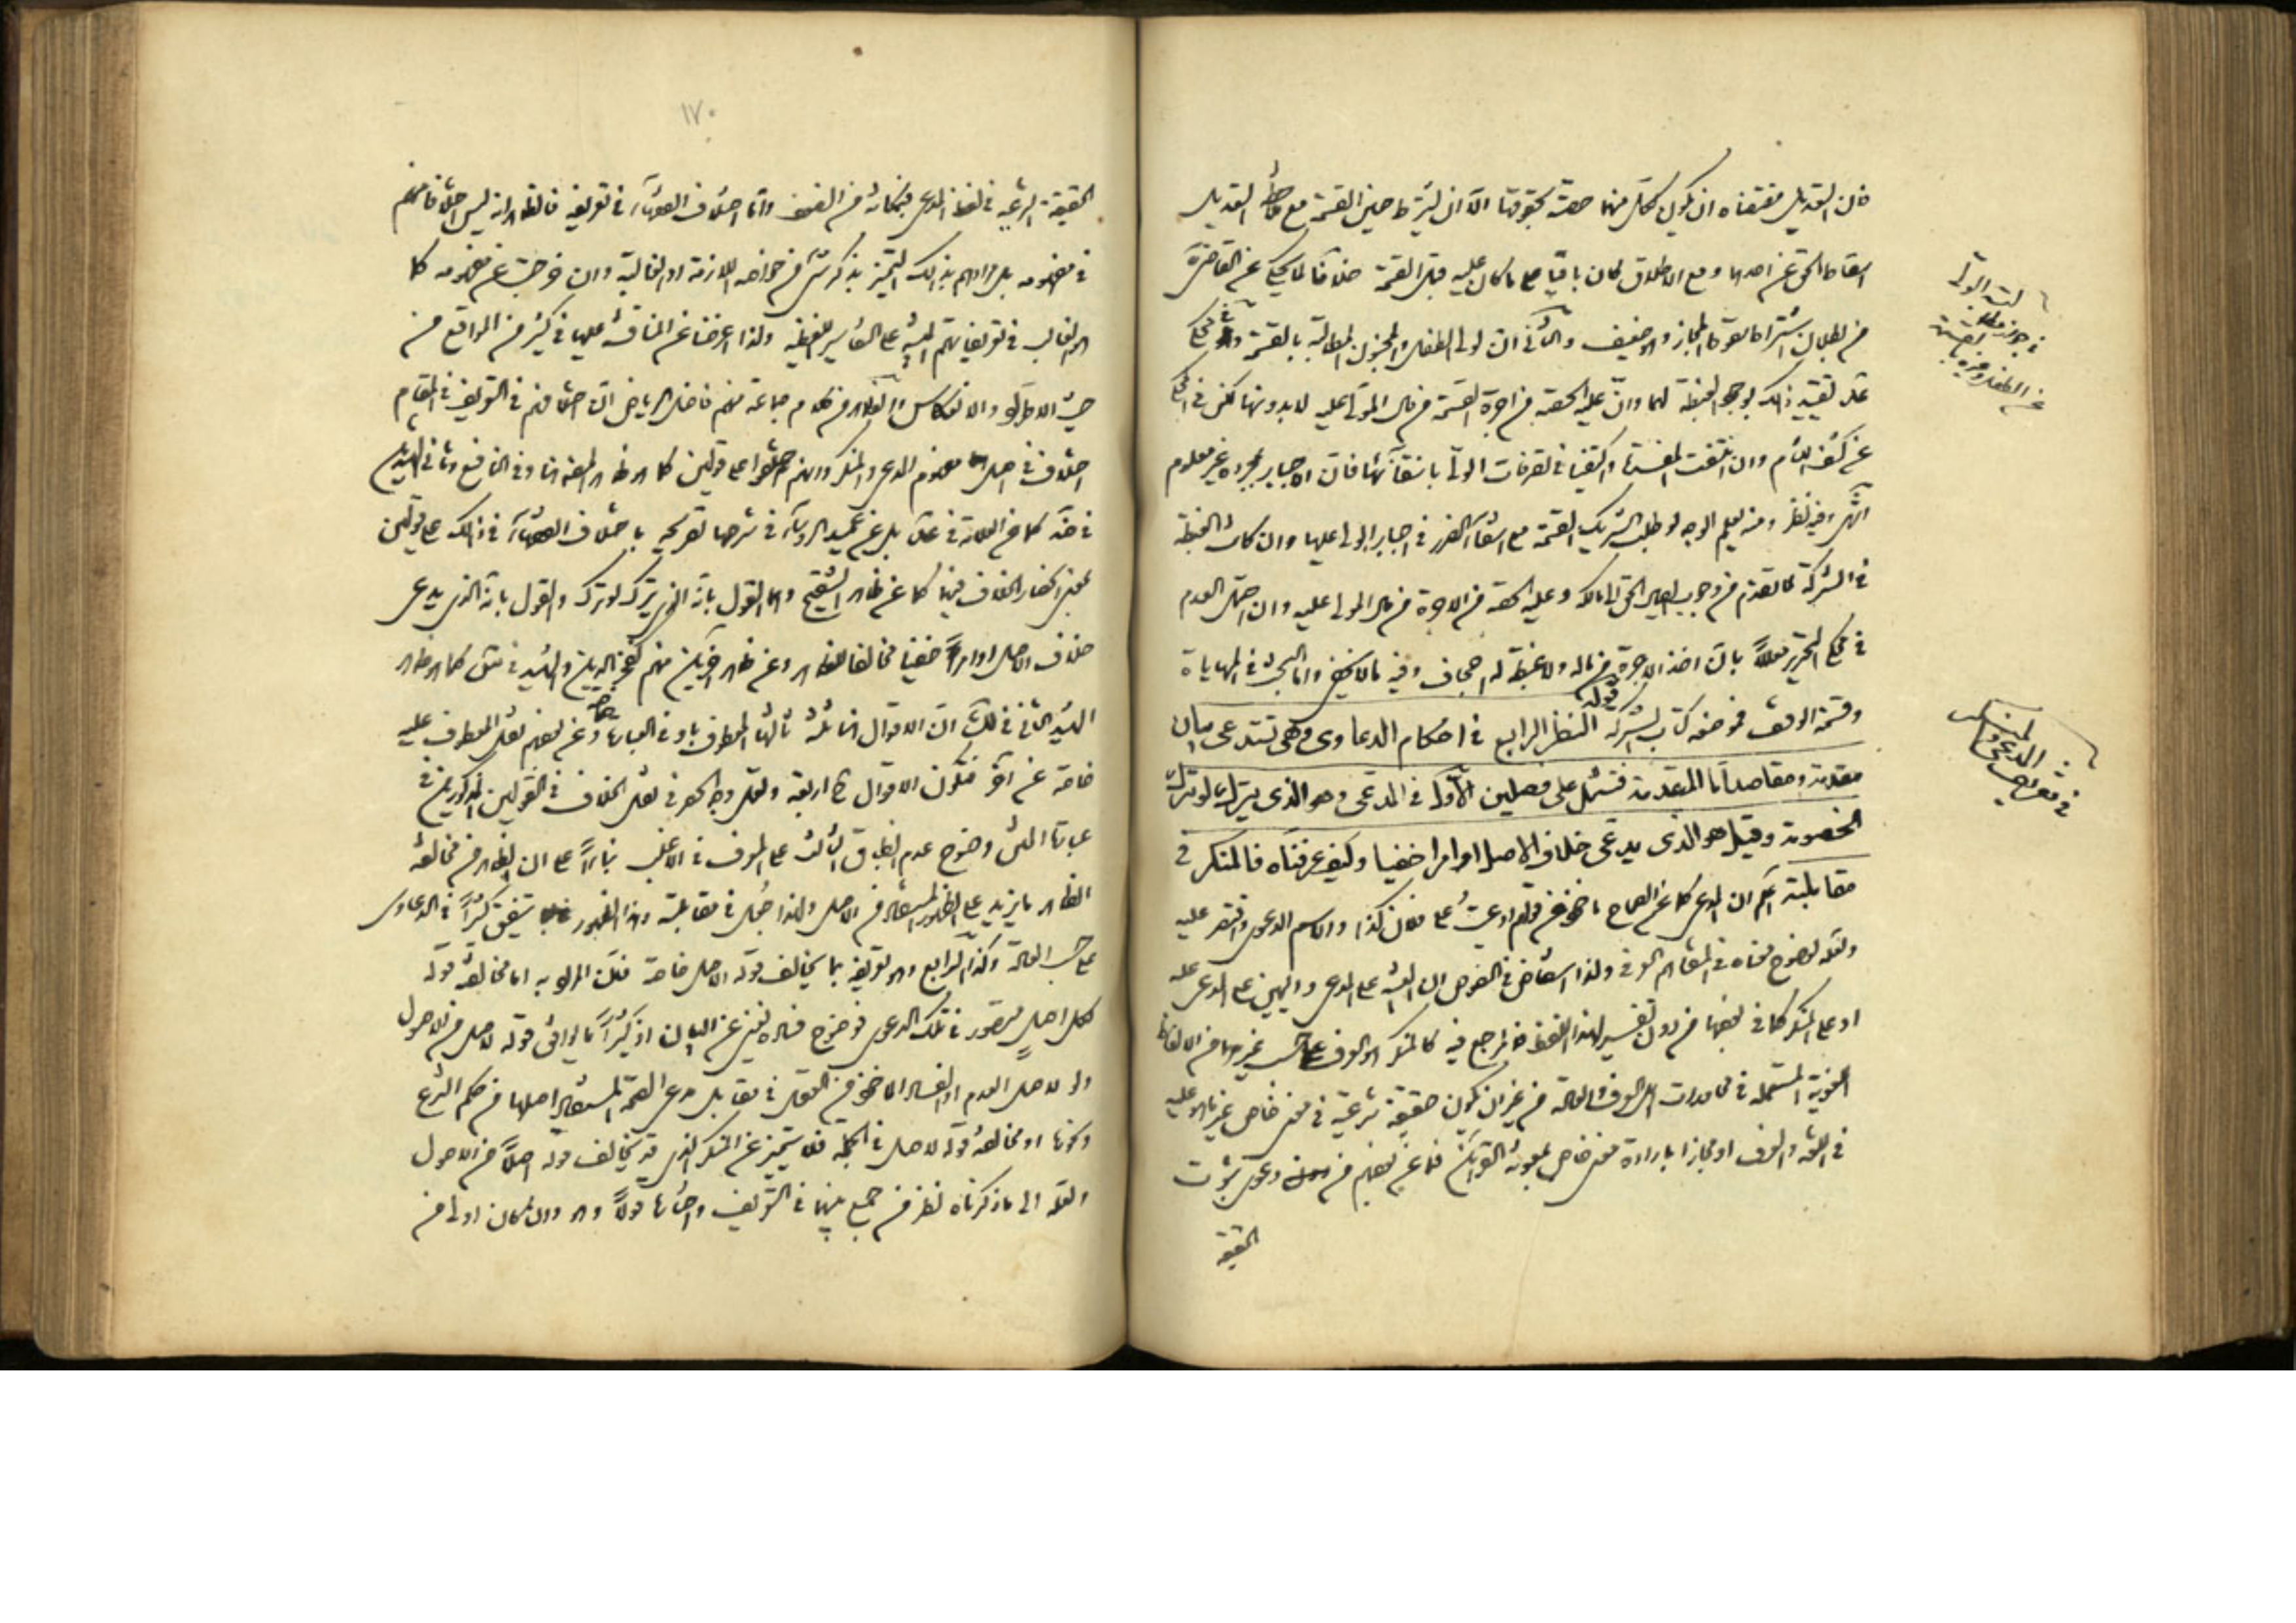 فان التعديل مقتضاه ان يكون لكل منهما حصته بحقوقها الا ان يشترط حين القسمة مع التعديل
اسقاط الحق عن احدهما ومع الاطلاق كان باقيا على ما كان عليه قبل القسمة خلافا لما يحكى عن القاضي
من بطلان اشتراط سقوط المجاز وهو ضعيف ان لولي الطفل والمجنون المطالبة بالقسمة
تقييد ذلك بوجود الغبطة لهما وان عليه الحصة من اجرة القسمة من مال المولى عليه لا بدونها لكن في المحكي
عن كشف اللثام وان انتفت المفسدة واكتفينا في تصرفات الولي بانتفائها فان الاجبار بمجرده غير معلوم
انتهى وفيه نظر ومنه يعلم الوجه لو طلب الشريك القسمة مع انتفاء الضرر في اجبار الولي عليها وان كان الغبطة
في الشركة لما تقدم من وجوب ايصال الحق الى مالكه وعليه الحصة من الاجرة من مال المولى عليه وان احتمل العدم
في محكي التحرير معللا بان اخذ الاجرة من ماله ولا غبطة له اجحاف وفيه ما لا يخفى واما البحث في المهاياة
وقسمة الوقف فموضعه كتاب الشركة قوله النظر الرابع في احكام الدعاوى وهي تستدعى بيان
مقدمة ومقاصد اما المقدمة فتشتمل على فصلين الاول في المدعى وهو الذى يترك لو ترك
الخصومة وقيل هو الذى يدعى خلاف الاصل او امرا خفيا وكيف عرفناه فالمنكر في
مقابلته اعلم ان المدعي كما عن الصحاح ماخوذ من قولهم ادعيت على فلان كذا والاسم الدعوى واقتصر عليه
ولعله لوضوح معناه في المتفاهم العرفي ولذا استفاض في النصوص ان البينة على المدعي واليمين على المدعى عليه
او على المنكر كما في بعضها من دون تفسير لهذا اللفظ فالمرجع فيه كالمنكر هو العرف على حسب غيرهما من الالفاظ
اللغوية المستعملة في محاورات اهل العرف واللغة من غير ان يكون حقيقة شرعية في معنى خاص غير ما هو عليه
في اللغة والعرف او مجازا بارادة معنى خاص بمعونة القرائن فما عن بعضهم من دعوى ثبوت
الحقيقة
في جواز مطالبة
عن الطفل وغيره
في تعريف
المدعي والمنكر
١٧٠
الحقيقة الشرعية في لفظ المدعي بمكانة من الضعف واما اختلاف الفقهاء في تعريفه فالظاهر انه ليس اختلافا منهم
في مفهومه بل مرادهم بذلك التميز بذكر شيء من خواصه اللازمة او الغالبة وان خرجت عن مفهومه كما
هو الغالب في تعريفاتهم المبنية على التفاسير اللفظية ولذا اعرضنا عن المناقشة عليها في كثير من المواقع من
حيث الاطراد والانعكاس والظاهر من كلام جماعة منهم فاضل الرياض ان اختلافهم في التعريف في المقام
اختلاف في اصل مفهوم المدعي والمنكر وانهم اختلفوا على قولين كما هو ظاهر المصنف هنا وفي النافع وثاني الشهيدين
في ضه كما عن العلامة في عد بل عن عميد الرؤساء في شرحها تصريحه باختلاف الفقهاء في ذلك على قولين
بمعنى انحصار الخلاف فيهما كما عن ظاهر التنقيح وهما القول بانه الذي يترك لو ترك والقول بانه الذي يدعي
خلاف الاصل او امرا خفيا مخالفا للظاهر وعن ظاهر اخرين منهم فخر الدين والشهيد في كما هو ظاهر
الشهيد الثاني في لك ان الاقوال ثلثة ثالثها المعطوف باو في العبارة وعن بعضهم نقل المعطوف عليه
خاصة عن اخر فتكون الاقوال ح اربعة ولعل وجه الحصر في نقل الخلاف في القولين المذكورين في
عبارة المتن وضوح عدم انطباق الثالث على العرف في الاغلب بناء على ان الظاهر من مخالفة
الظاهر ما يزيد على الظهور المستفاد من الاصل ولذا جعل في مقابلته وهذا الظهور يتفق كثيرا في الدعاوى
على حسب العادة وكذا الرابع وهو تعريفه بما يخالف قوله الاصل خاصة فلان المراد به اما مخالفة قوله
لكل اصل متصور في تلك الدعوى فوضوح فساده يغني عن البيان اذ كثيرا ما يوافق قوله لاصل من الاصول
ولو لاصل العدم او الفساد الماخوذ من العقل في مقابل مدعي الصحة المستفاد اصلها من حكم الشرع
وكونها او مخالفة قوله لاصل في الجملة فلا يتميز عن المنكر الذي قد يخالف قوله اصلا من الاصول
ولعله الى ما ذكرناه نظر من جمع بينهما في التعريف واختارهما قولا وهو وان كان اولى من